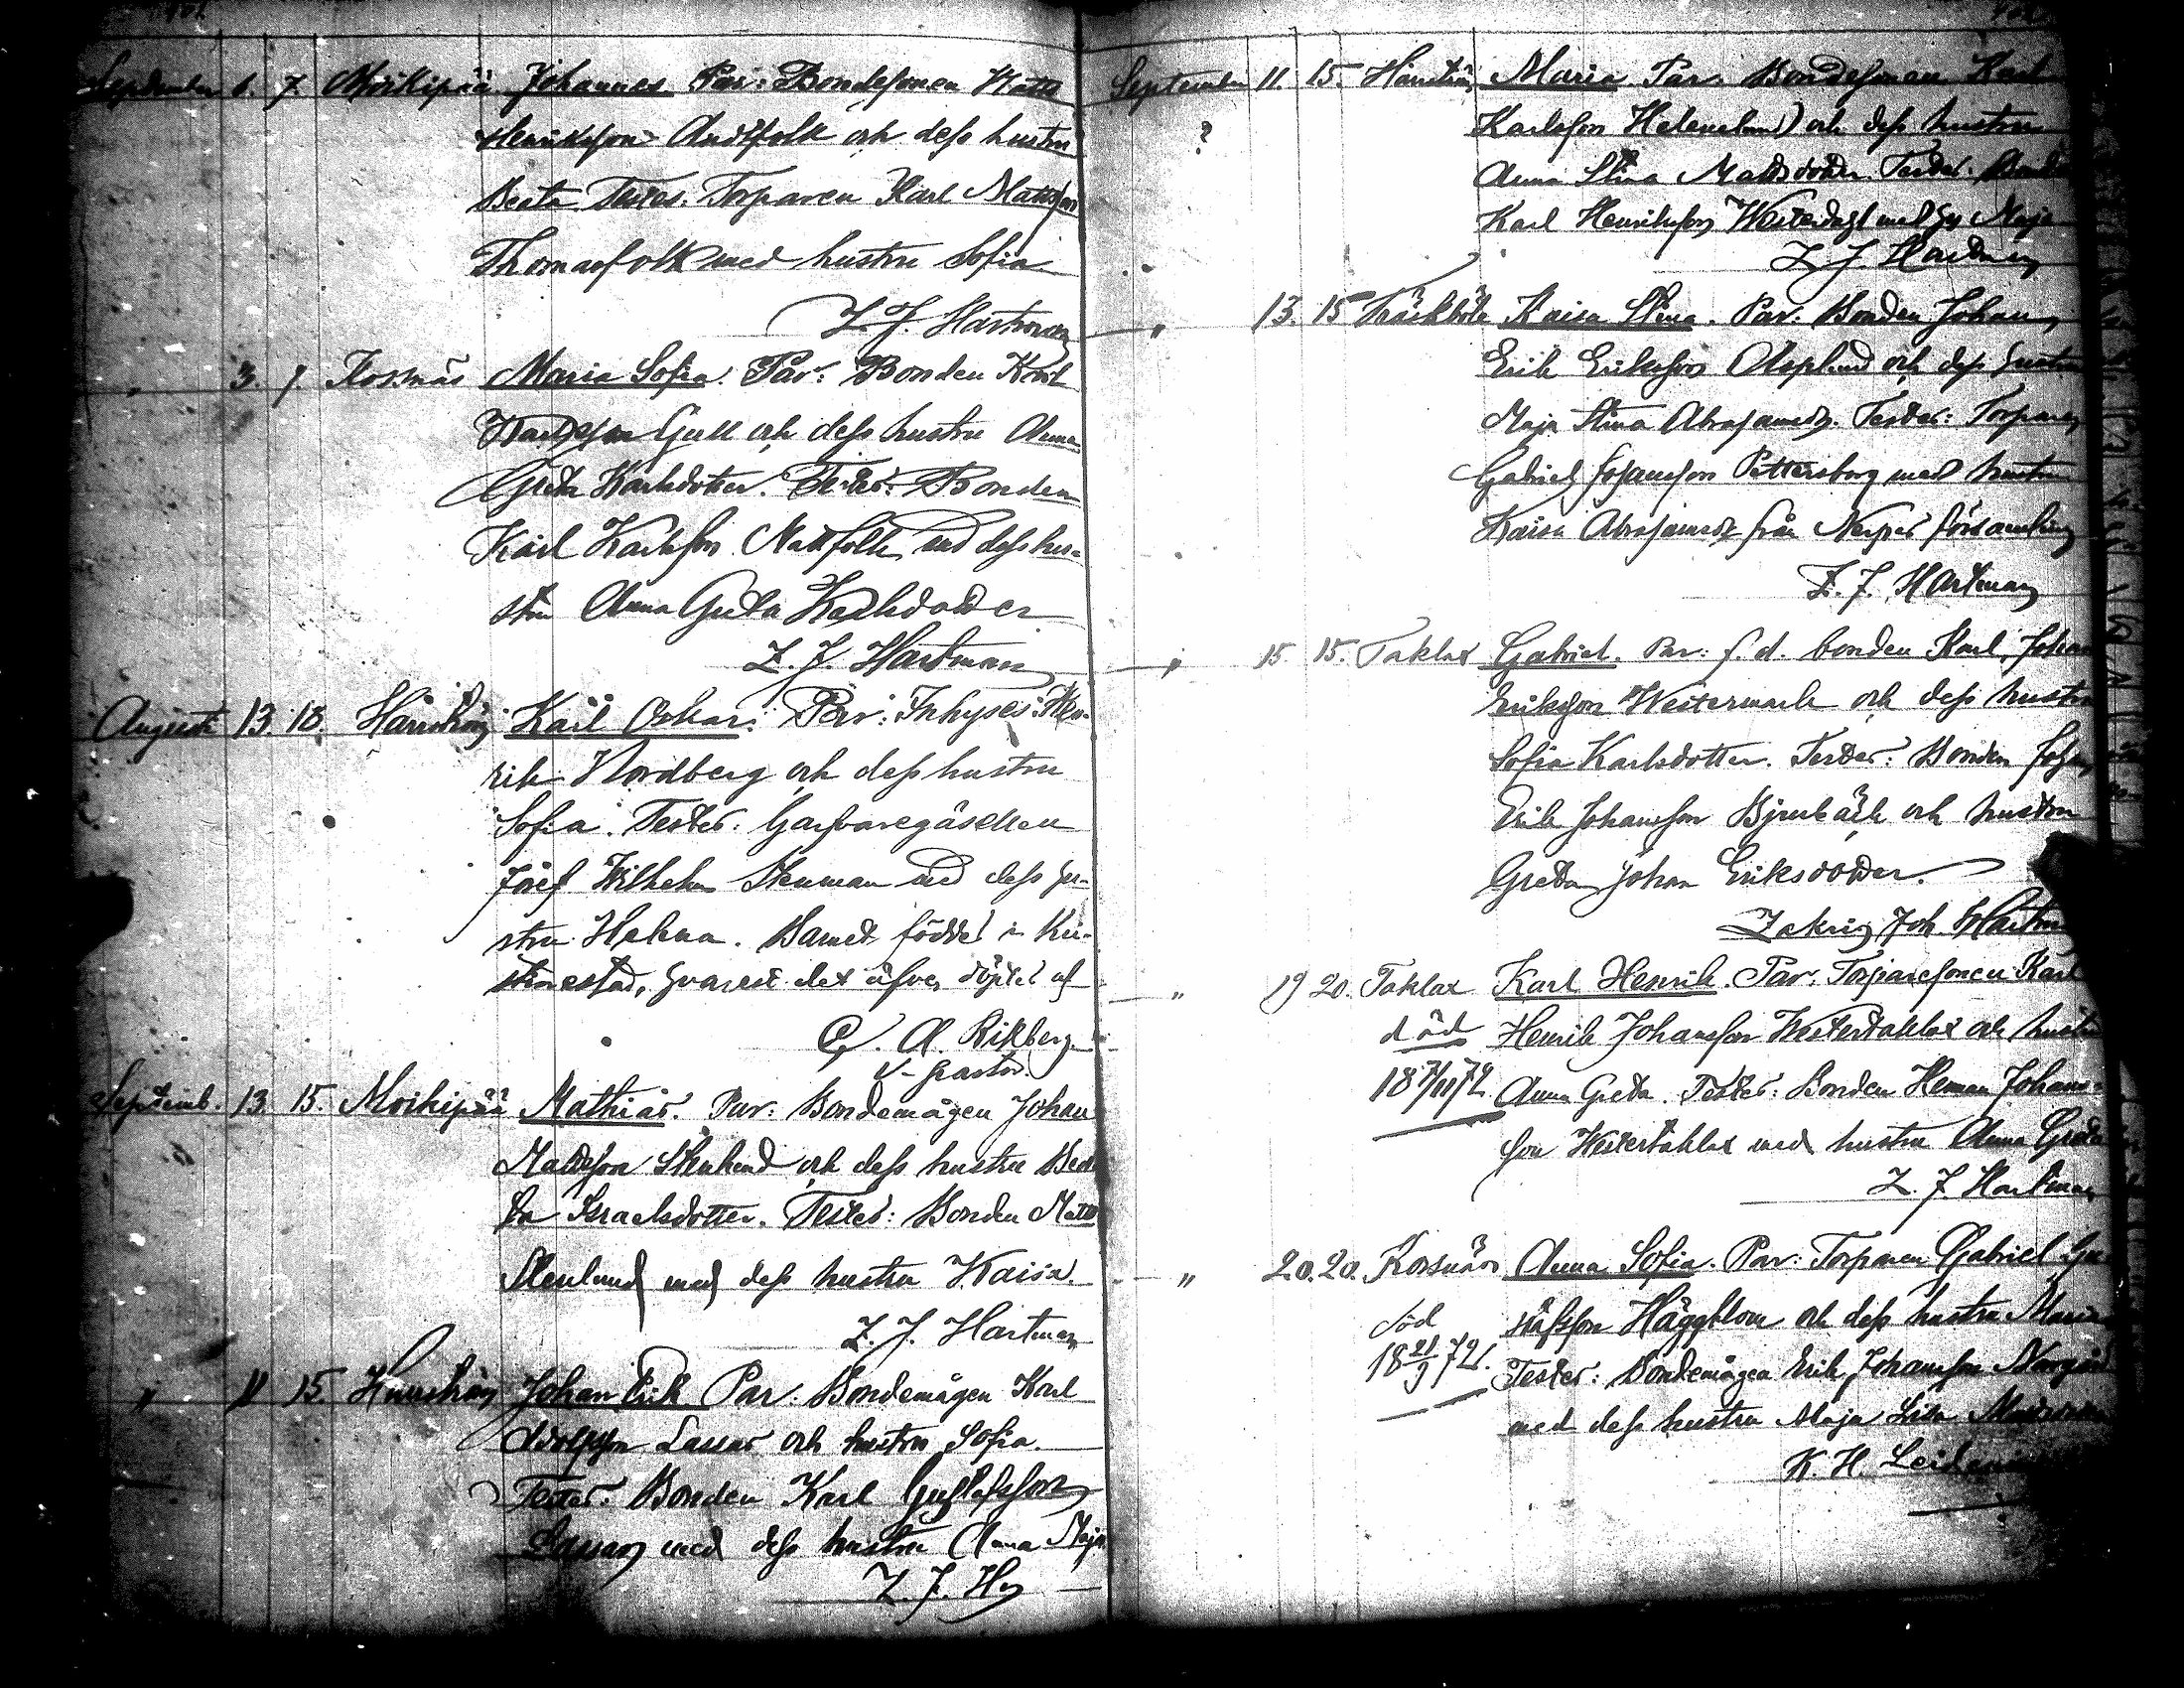 September 6. 7. Moikipää Johannes. Par: Bondesonen Matts
Henriksson Andtfolk och dess hustru
Beata. Testes. Torparen Karl Mattsson
Thomasfolk med hustru Sofia
Z. J. Hartman
" 3. 7. Korsnäs Maria Sofia. Par: Bonden Karl
Karlsson Gull och dess hustru Anna
Greta Karlsdotter. Testes: Bonden
Karl Karlsson Nattfolk med dess hu-
stru Anna Greta Karlsdotter
Z. J. Hartman
Augusti 13. 18. Harrström Karl Oskar. Par: Inhyses: Hen-
rik Nordberg och dess hustru
Sofia. Testes: Garfvaregesällen
Josef Wilhelm Stenman med dess hu-
stru Helena. Barnet föddes i Kri-
stinestad, hvarest det äfven döptes af
A. Rikberg
v. Pastor.
Septemb. 13. 15. Moikipää Mathias. Par: Bondemågen Johan
Mattsson Stenlund och dess hustru Bea-
ta Israelsdotter. Testes: Bonden Matts
Stenlund med dess hustru Kaisa.
Z. J. Hartman
" 11 15. Harrström Johan Erik Par: Bondemågen Karl
Adolfsson Lassas och hustru Sofia.
Testes: Bonden Karl Gustafsson
Lassas med dess hustru Anna Maja
Z. J. Hn
September 11. 15. Harrström Maria. Par: Bondesonen Karl
? Karlsson Helenelund) och dess hustru
Anna Stina Mattsdotter. Testes: Bonden
Karl Henriksson Westerdahl med h. Maja
Z. J. Hartman
" 13. 15 Träskböle Kaisa Stina. Par: Bonden Johan
Erik Eriksson Asplund och dess hustru
Maja Stina Abrahamsdr. Testes: Torparen
Gabriel Johansson Pettersborg med hustru
Kaisa Abrahamsdr från Nerpes församling
Z. J. Hartman
" 15. 15. Taklax Gabriel. Par: f. d. bonden Karl Johan
Eriksson Westermark och dess hustru
Sofia Karlsdotter. Testes: Bonden Johan
Erik Johansson Bjurbäck och hustru
Greta Johan Eriksdotter.
Zakris Joh. Hartman
" 19 20. Taklax Karl Henrik. Par: Torparesonen Karl
död Henrik Johansson Westertaklax och hustru
18 7/11 72. Anna Greta. Testes: Bonden Herman Johans-
son Westertaklax med hustru Anna Greta
Z. J. Hartman
" 20. 20. Korsnäs Anna Sofia. Par: Torparen Gabriel Gu-
död stafsson Häggblom och dess hustru Maria
18 21/9 72. Testes: Bondemågen Erik Johansson Norrgård
med dess hustru Maja Lisa
K. H.